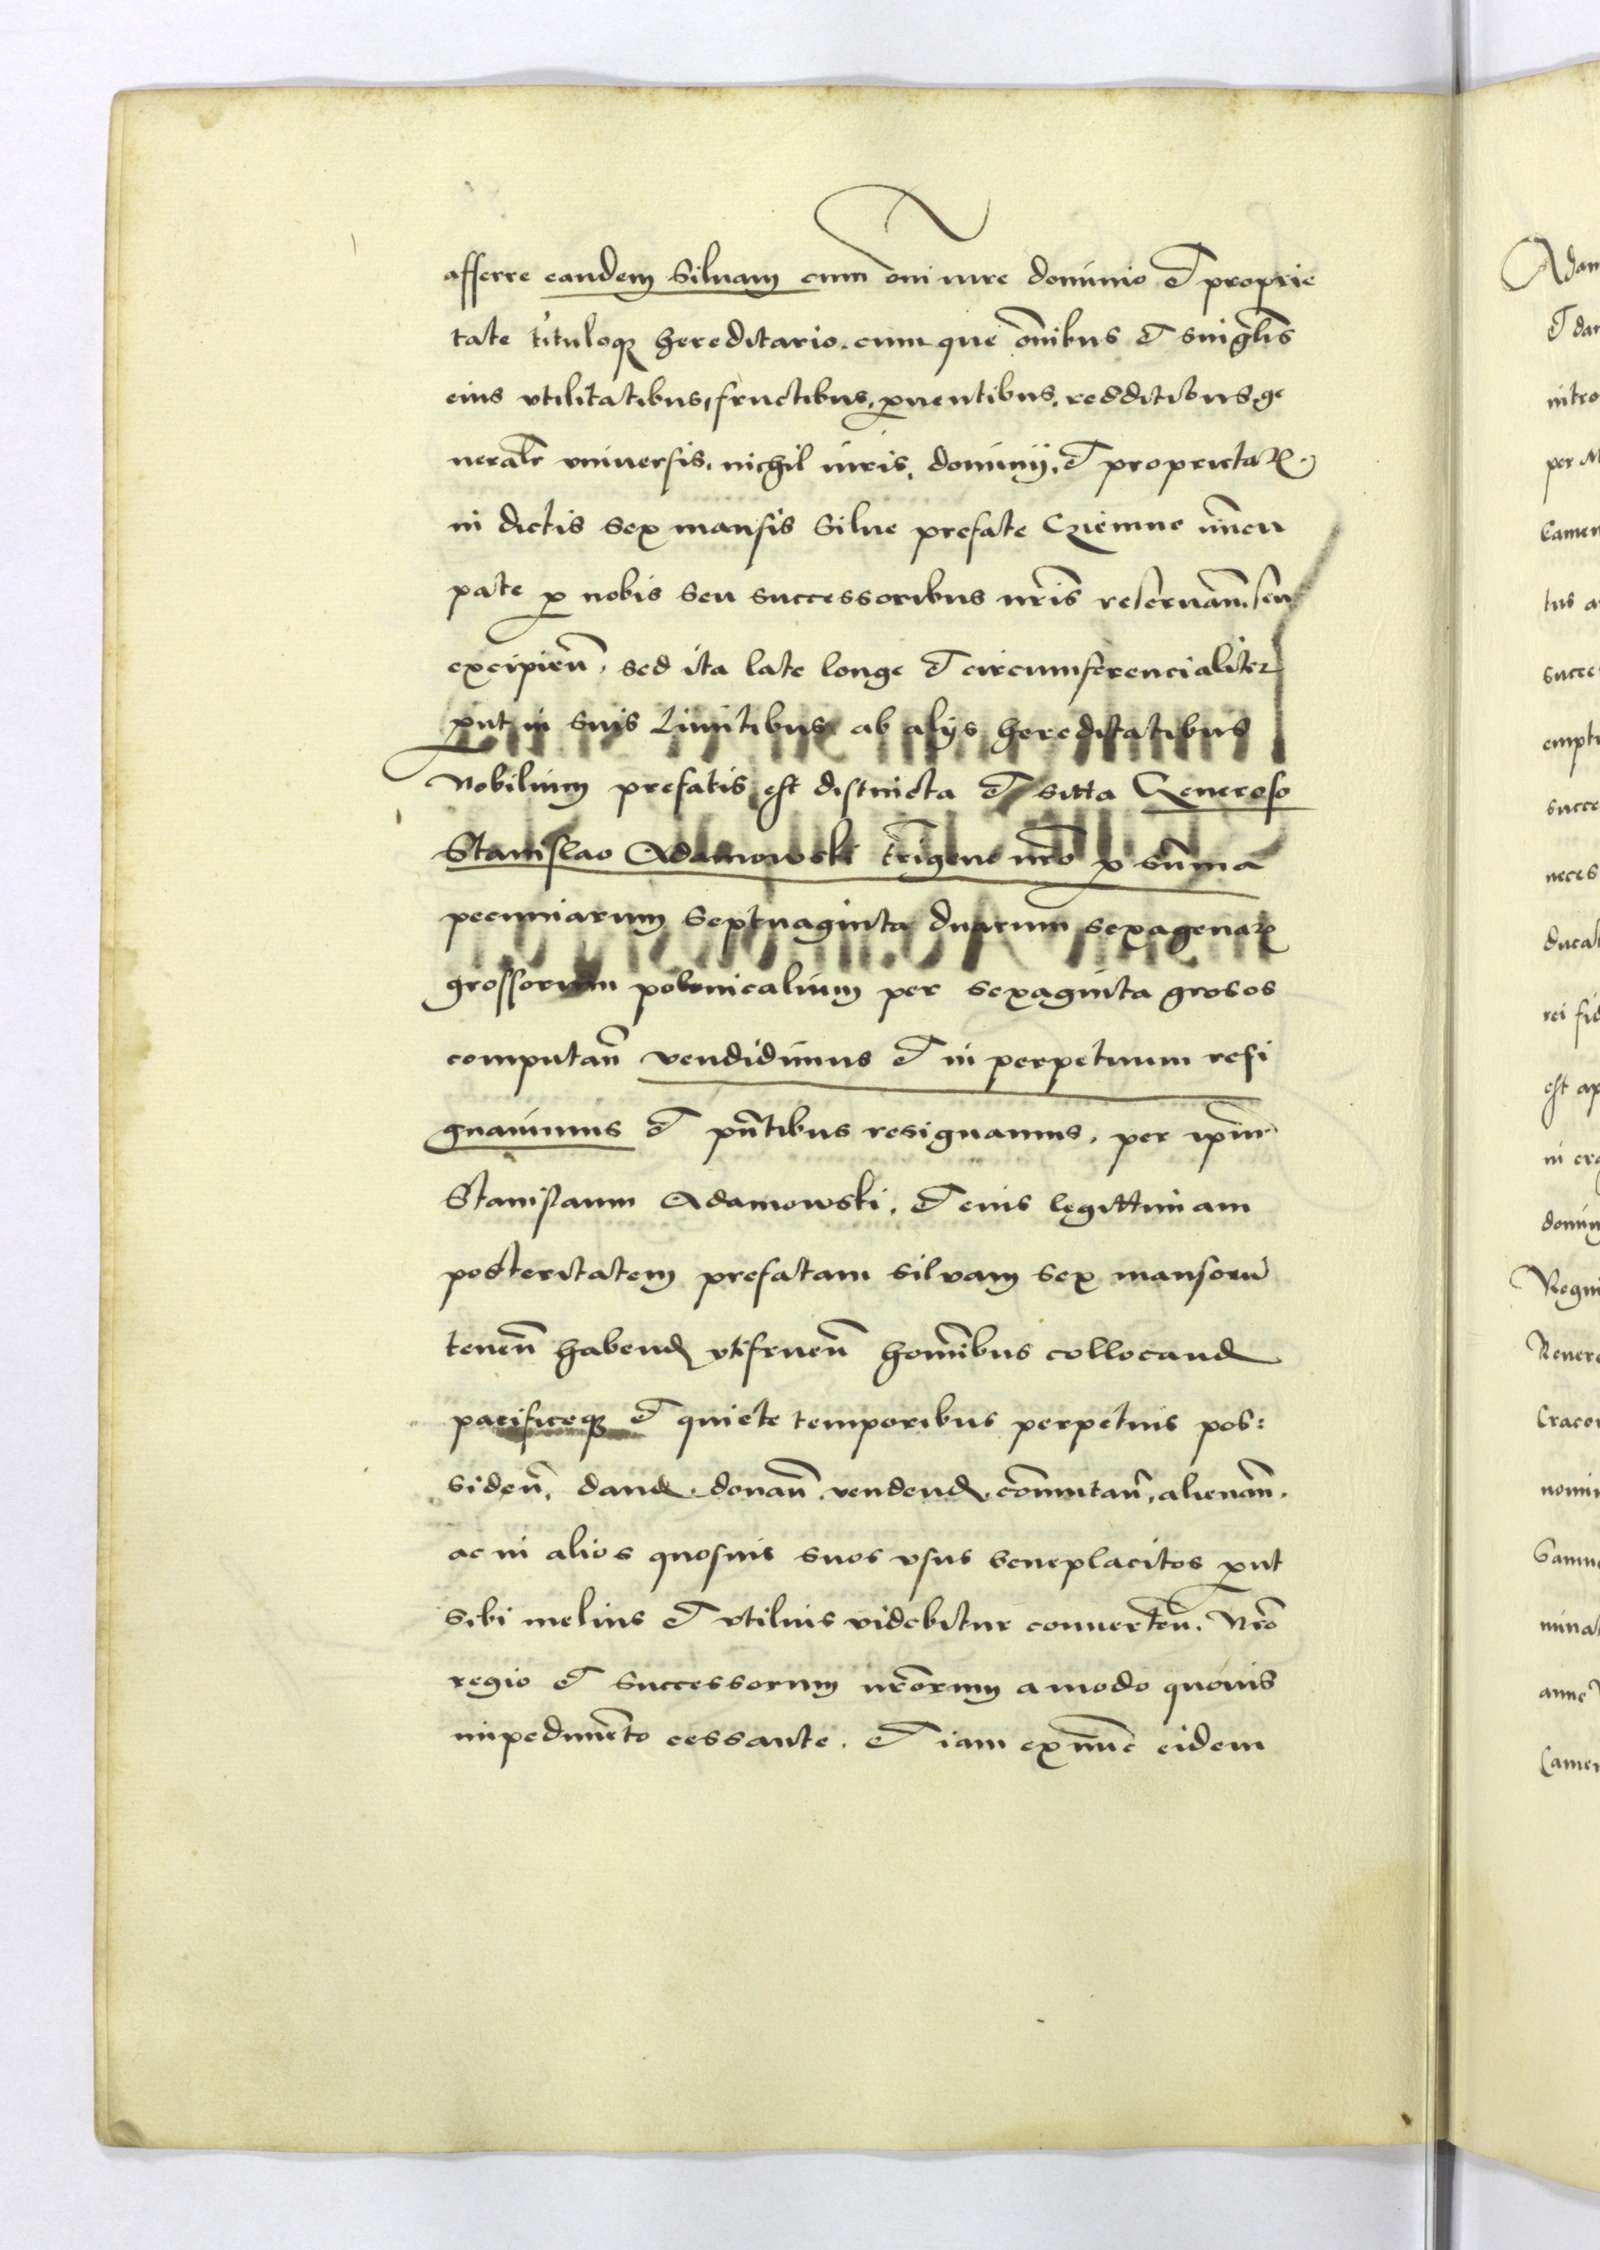 afferre eandem Siluam cum oni iure dominio et proprie
tate tituloqȝ hereditario. cum que omibus et singlis
eius vtilitatibus, fructibus, puentibus, redditibus, ge
neralr vniuersis, nichil iuris, dominij, et proprieta
in dictis sex mansis Silue prefate Cziemne nuncu
pate p nobis seu successoribus nris reseruan. seu
excipien. sed ita late longe et circumferencialiter
put in suis Limitibus ab alijs hereditatibus
Nobilium prefatis est distincta et sitta Generoso
Stanislao Adamowski nro p summa
pecuniarum Septuaginta duarum sexagenaꝝ
grossorum polonicalium per sexaginta grosos
computan vendidimus et in perpetuum resi
gnauimus et pntibus resignamus, per ipm
Stanislaum Adamowski, et eius legittimam
posteritatem prefatam silvam sex mansoru
tenen habend vtifruen hominibus collocand
pacificeqȝ et quiete temporibus perpetuis pos:
siden, dand. donan vendend, commutan, alienan.
ac in alios quosuis suos vsus beneplacitos put
Sibi melius et vtilius videbitur conuerten. Nro
regio et successorum nrorum amodo quouis
impedimeto cessante. et iam exnunc eidem
Adam
et dan
intro
per M
Camen
tus a
succe
empti
succe
neces
ducat
rei fid
est ap
in cra
domin
Regni
Reuere
Cracou
nomi
Samu
minat
anne
Camer